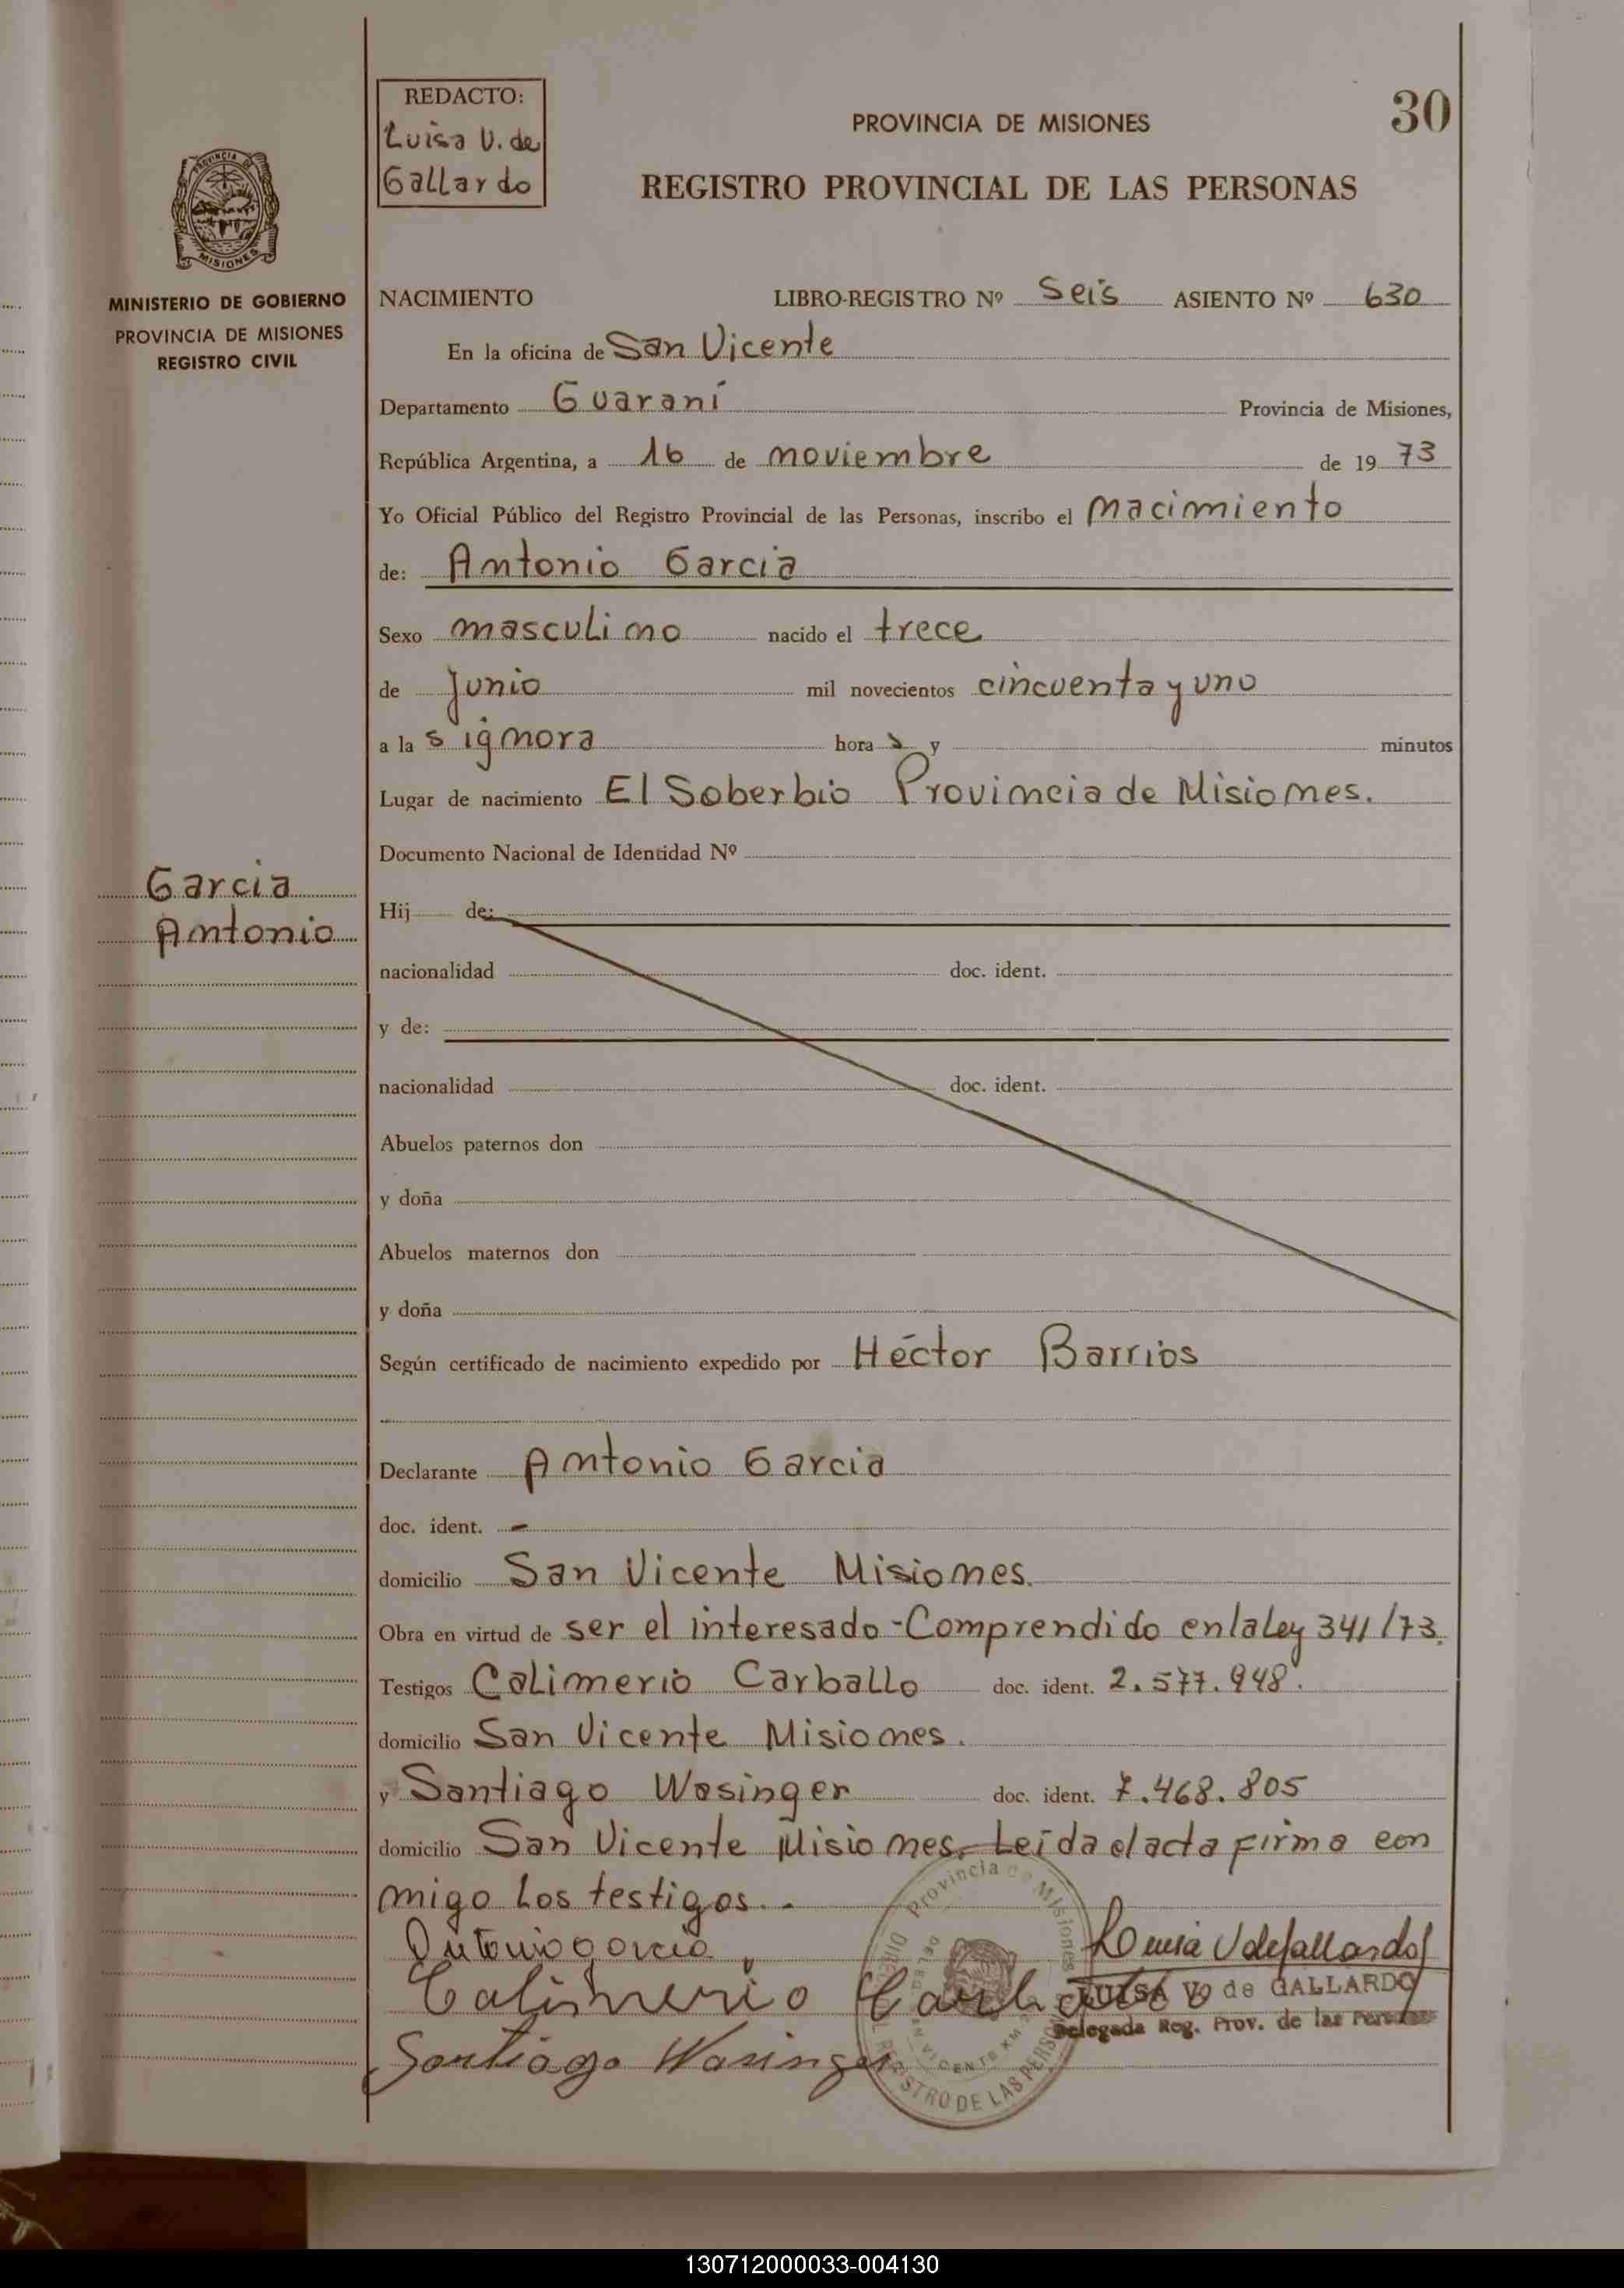 REDACTO:
Luisa V. de
Gallardo
PROVINCIA DE MISIONES
30
REGISTRO PROVINCIAL DE LAS PERSONAS
PROVINCIA DE
MISIONES
MINISTERIO DE GOBIERNO
PROVINCIA DE MISIONES
REGISTRO CIVIL
NACIMIENTO LIBRO-REGISTRO Nº Seis ASIENTO Nº 630
En la oficina de San Vicente
Departamento Guaraní Provincia de Misiones,
República Argentina, a 16 de noviembre de 1973
Yo Oficial Público del Registro Provincial de las Personas, inscribo el nacimiento
de: Antonio Garcia
Sexo masculino nacido el trece
de Junio mil novecientos cincuenta y uno
a la s ignora hora s y minutos
Lugar de nacimiento El Soberbio Provincia de Misiones.
Documento Nacional de Identidad Nº
Garcia
Antonio
Hij de:
nacionalidad doc. ident.
y de:
nacionalidad doc. ident.
Abuelos paternos don
y doña
Abuelos maternos don
y doña
Según certificado de nacimiento expedido por Héctor Barrios
Declarante Antonio Garcia
doc. ident. -
domicilio San Vicente Misiones.
Obra en virtud de ser el interesado - Comprendido en la Ley 341/73.
Testigos Calimerio Carballo doc. ident. 2.577.948.
domicilio San Vicente Misiones.
y Santiago Wasinger doc. ident. 7.468.805
domicilio San Vicente Misiones. Leída el acta firma con
migo los testigos. -
Antonio Garcia
Luisa V de Gallardo
Calimerio Carballo
LUISA V. de GALLARDO
Delegada Reg. Prov. de las Personas
Santiago Wasinger
Provincia de Misiones
REGISTRO DE LAS PERSONAS
130712000033-004130